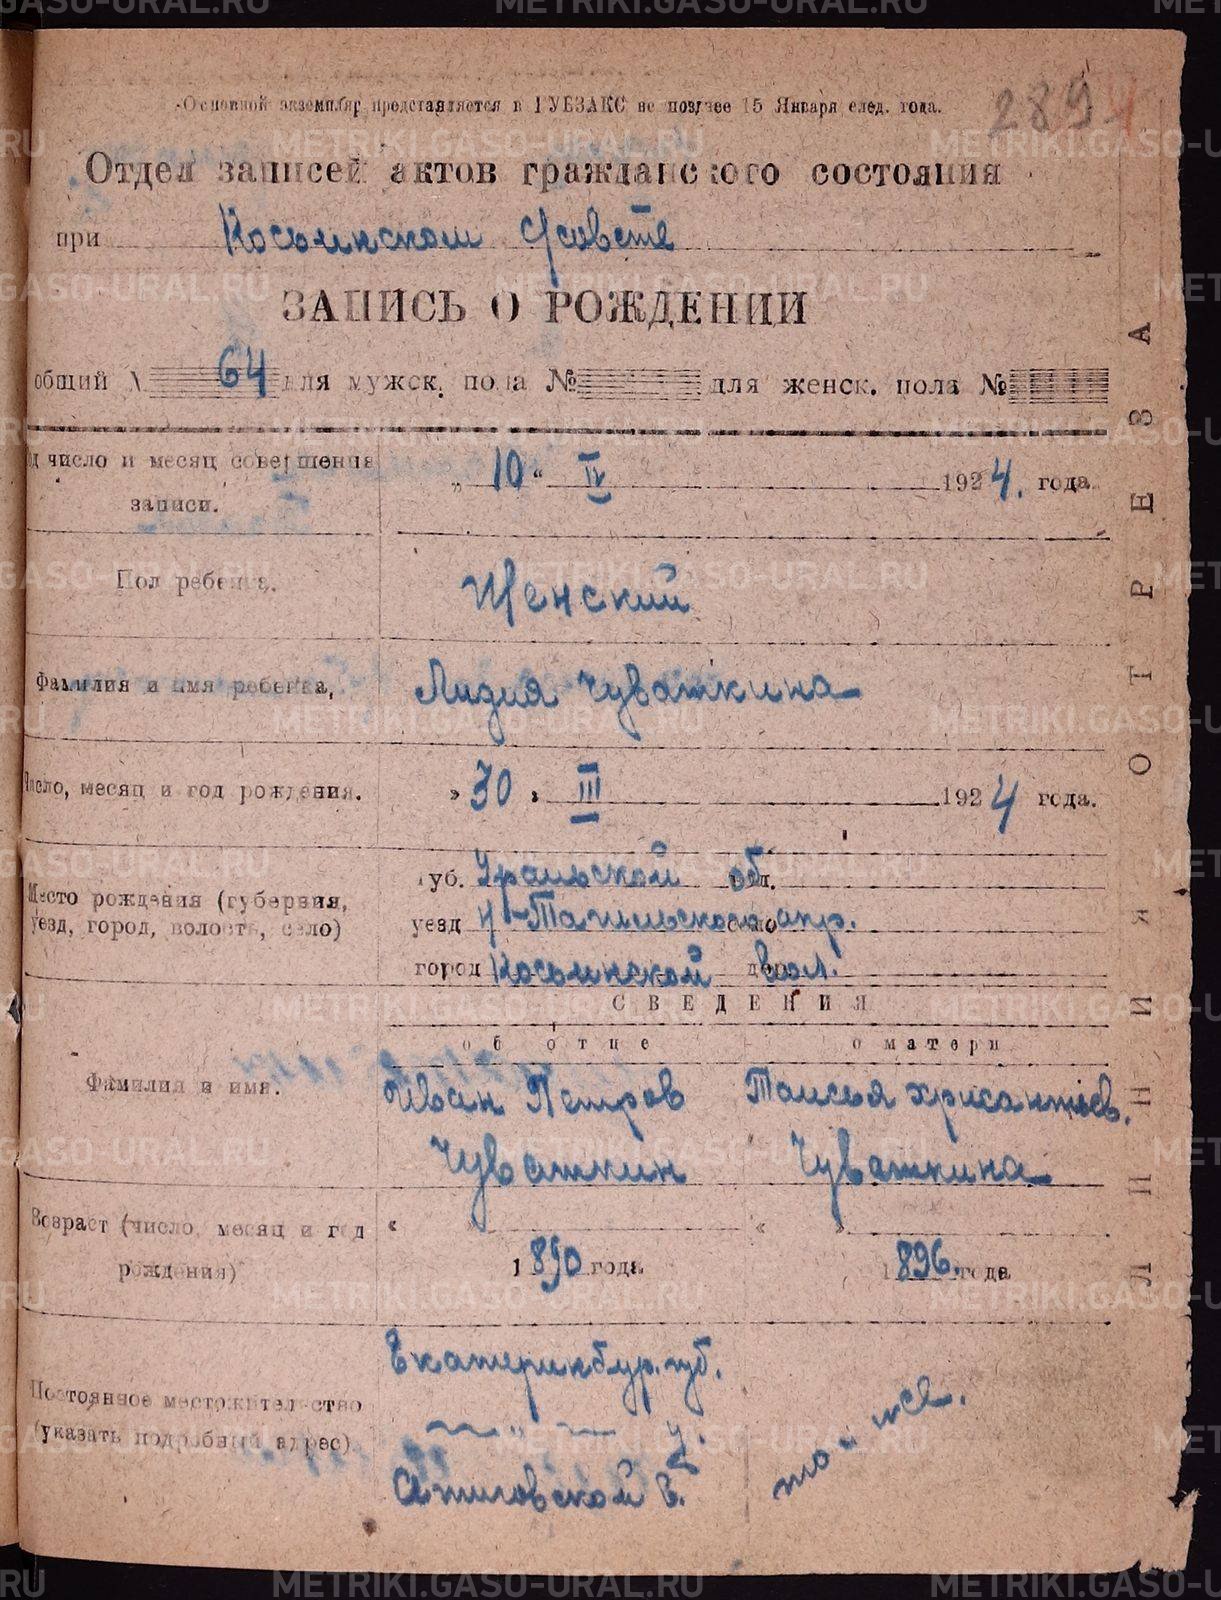 Основной экземпляр представляется в ГУБЗАКС не позднее 15 Января след. года.
289
Отдел записей актов гражданского состояния
при
ЗАПИСЬ О РОЖДЕНИИ
общий № 64 для мужск. пола № для женск. пола №
Год число и месяц совершения записи. „ 10 “ IV 1924. года
Пол ребенка. Женский
Фамилия и имя ребенка, Лидия Чуваткина
Число, месяц и год рождения. » 30 » III 1924 года.
Место рождения (губерния, уезд, город, волость, село)
губ. Уральской об л.
уезд Н-Тагильского окр.
город вол.
СВЕДЕНИЯ
об отце о матери
Фамилия и имя.
Иван Петров Таисья Хрисантьев.
Чуваткин Чуваткина
Возраст (число, месяц и год рождения) « » « »
1890 года 1896. года
Постоянное местожительство (указать подробный адрес)
Екатеринбур. губ.
— „ — у.
Атиговской в. та-же.
ЛИНИЯ ОТРЕЗА
METRIKI.GASO-URAL.RU